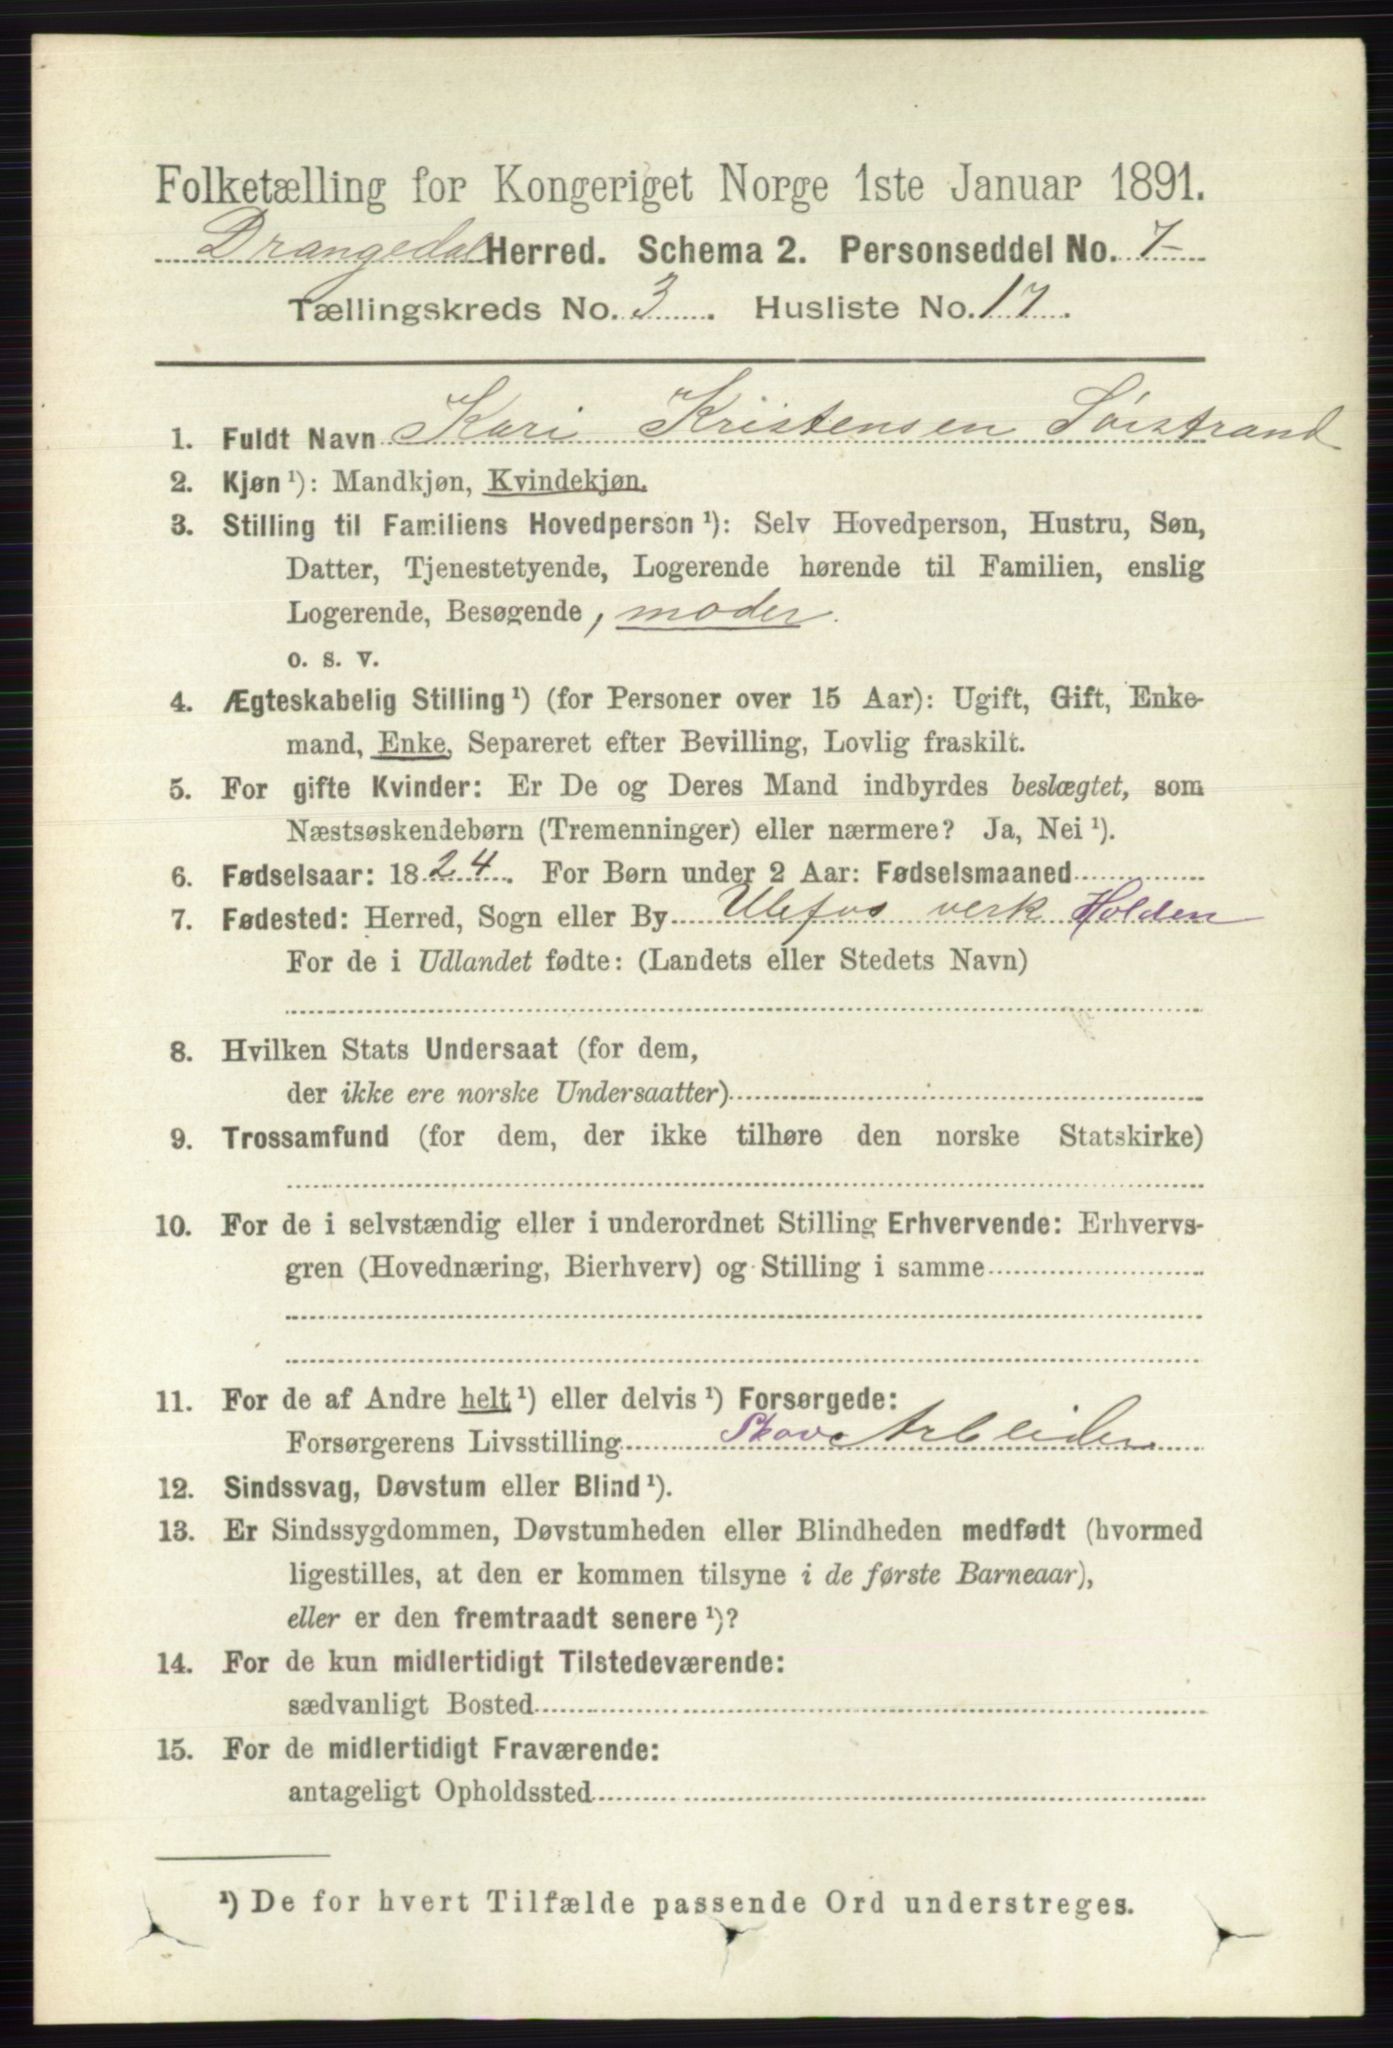 Folketælling for Kongeriget Norge 1ste Januar 1891.
Drangedal Herred. Schema 2. Personseddel No. 7
Tællingskreds No. 3. Husliste No. 17.
1. Fuldt Navn Kari Kristensen Sørstrand
2. Kjøn ¹): Mandkjøn, Kvindekjøn.
3. Stilling til Familiens Hovedperson ¹): Selv Hovedperson, Hustru, Søn,
Datter, Tjenestetyende, Logerende hørende til Familien, enslig
Logerende, Besøgende, moder.
o. s. v.
4. Ægteskabelig Stilling ¹) (for Personer over 15 Aar): Ugift, Gift, Enke-
mand, Enke, Separeret efter Bevilling, Lovlig fraskilt.
5. For gifte Kvinder: Er De og Deres Mand indbyrdes beslægtet, som
Næstsøskendebørn (Tremenninger) eller nærmere? Ja, Nei ¹).
6. Fødselsaar: 1824. For Børn under 2 Aar: Fødselsmaaned
7. Fødested: Herred, Sogn eller By Ulefos verk Holden
For de i Udlandet fødte: (Landets eller Stedets Navn)
8. Hvilken Stats Undersaat (for dem,
der ikke ere norske Undersaatter)
9. Trossamfund (for dem, der ikke tilhøre den norske Statskirke)
10. For de i selvstændig eller i underordnet Stilling Erhvervende: Erhvervs-
gren (Hovednæring, Bierhverv) og Stilling i samme
11. For de af Andre helt ¹) eller delvis ¹) Forsørgede:
Forsørgerens Livsstilling Skov Arbeider
12. Sindssvag, Døvstum eller Blind ¹).
13. Er Sindssygdommen, Døvstumheden eller Blindheden medfødt (hvormed
ligestilles, at den er kommen tilsyne i de første Barneaar),
eller er den fremtraadt senere ¹)?
14. For de kun midlertidigt Tilstedeværende:
sædvanligt Bosted
15. For de midlertidigt Fraværende:
antageligt Opholdssted
¹) De for hvert Tilfælde passende Ord understreges.